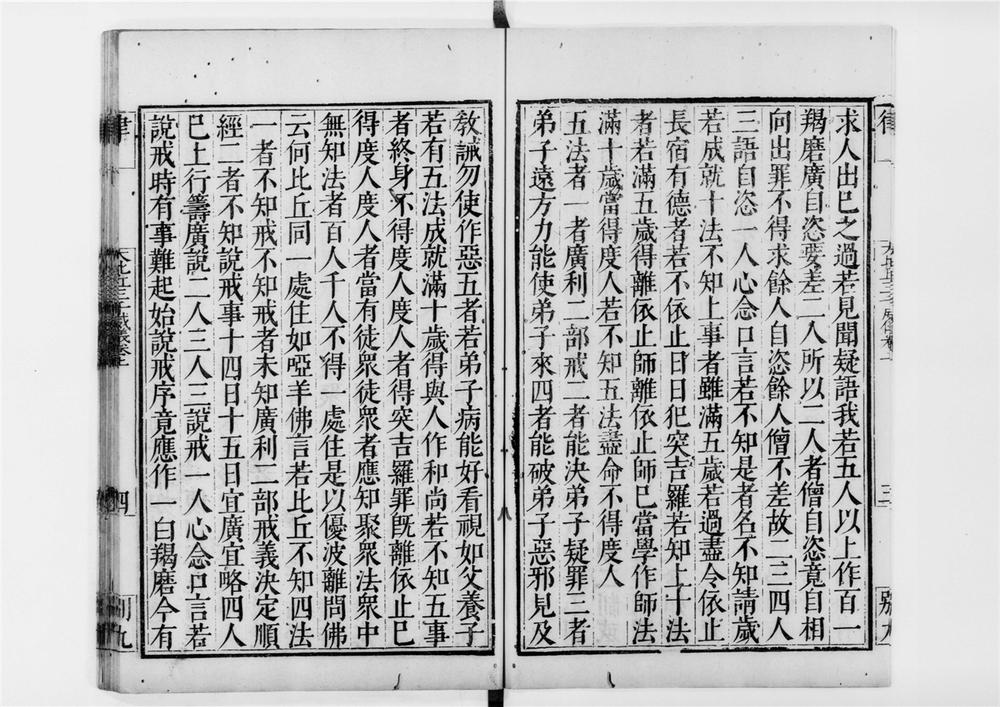 求人出已之過若見聞疑語我若五人以上作百一
羯磨廣自恣要差二人所以二人者僧自恣竟自相
向出罪不得求餘人自恣餘人僧不差故二三四人
三語自恣一人心念口言若不知是者名不知請歲
若成就十法不知上事者雖滿五歲若過盡令依止
長宿有德者若不依止日日犯突吉羅若知上十法
者若滿五歲得離依止師離依止師已當學作師法
滿十歲當得度人若不知五法盡命不得度人
五法者一者廣利二部戒二者能決弟子疑罪三者
弟子遠方力能使弟子來四者能破弟子惡邪見及
教誡勿使作惡五者若弟子病能好看視如父養子
若有五法成就滿十歲得與人作和尚若不知五事
者終身不得度人度人者得突吉羅罪既離依止已
得度人度人者當有徒衆徒衆者應知聚衆法衆中
無知法者百人千人不得一處住是以優波離問佛
云何比丘同一處住如啞羊佛言若比丘不知四法
一者不知戒不知戒者未知廣利二部戒義決定順
經二者不知說戒事十四日十五日宜廣宜略四人
已上行籌廣說二人三人三說戒一人心念口言若
說戒時有事難起始說戒序竟應作一白羯磨今有
律
四
三